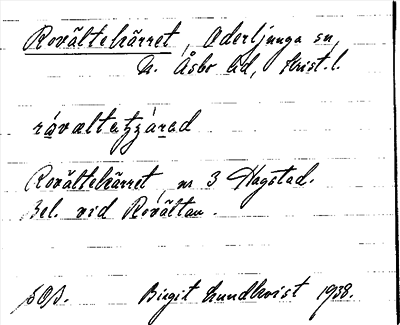 Rovältekärret, Oderljunga sn,
N. Åsbo hd, Krist. l.
Rovältekärret, nr 3 Hagstad.
Bel. vid Rovältan.
Birgit Lundkvist 1938.